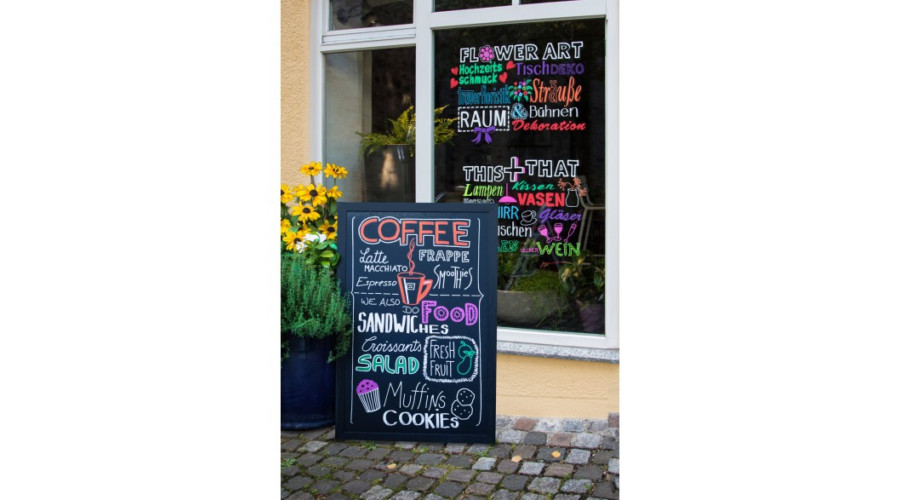 FLOWER ART
Hochzeits TischDEKO
schmuck
Trauerfloristik Sträuße
RAUM & Bühnen
Dekoration
THIS + THAT
Lampen Kissen
VASEN
Gläser
WEIN
COFFEE
Latte FRAPPE
MACCHIATO
Espresso SMOOTHIES
WE ALSO
DO FOOD
SANDWICHES
Croissants FRESH
SALAD FRUIT
Muffins
COOKIES